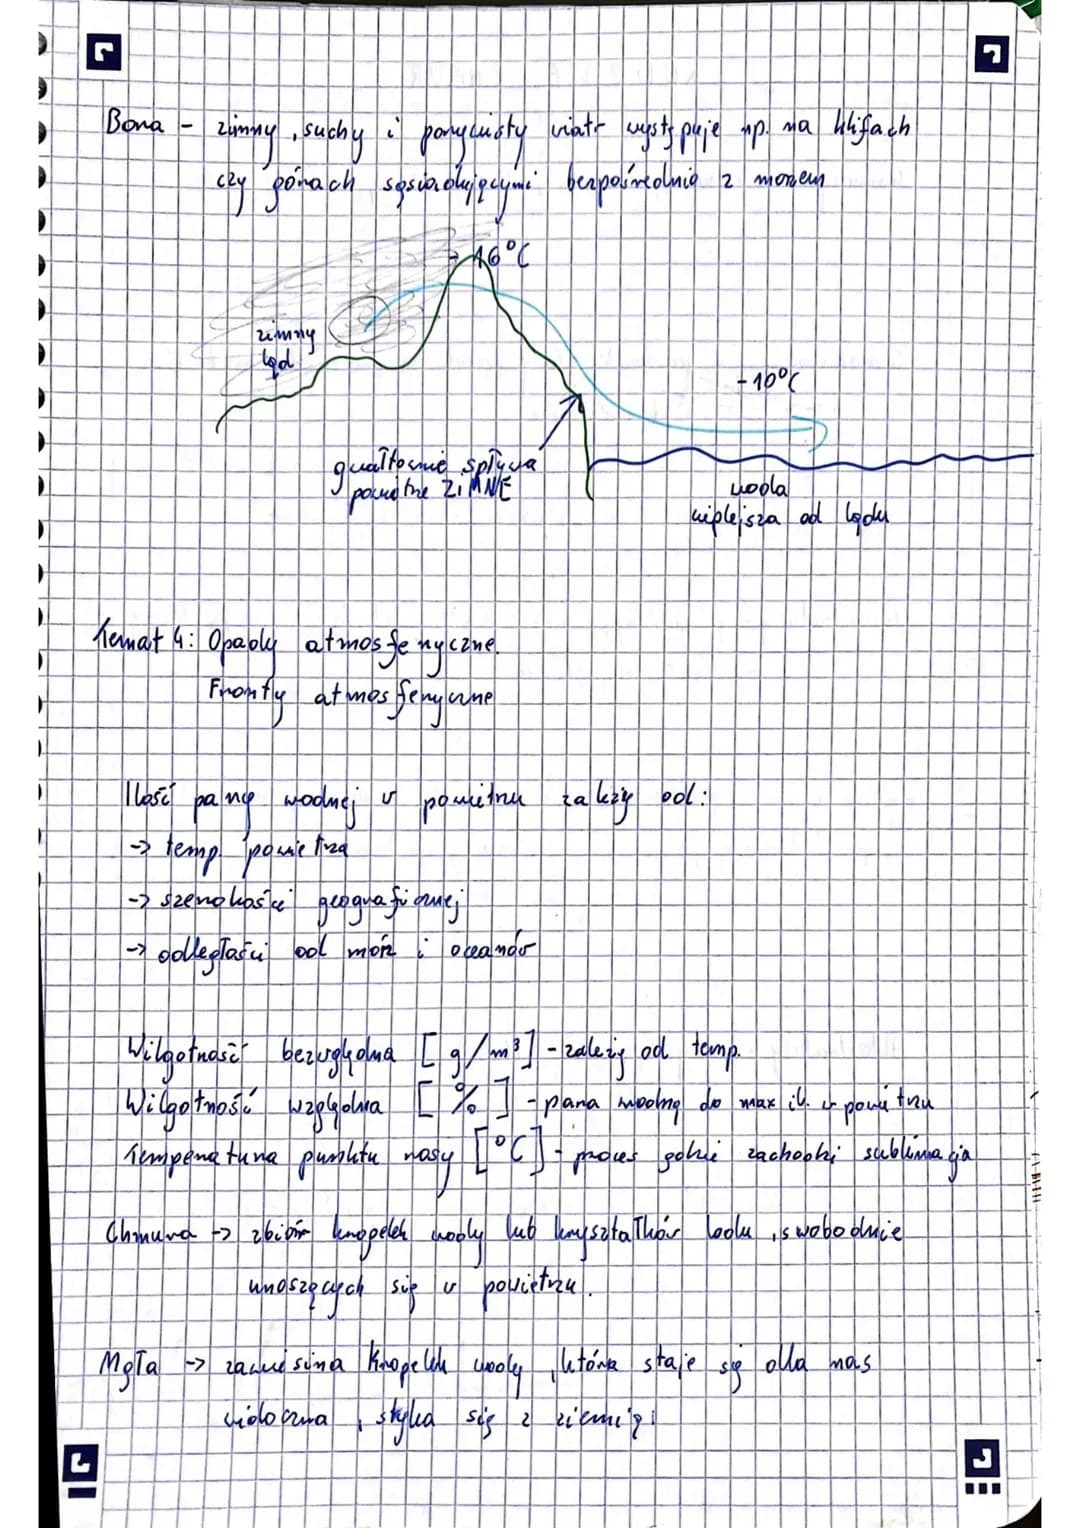 Bora - zimny, suchy i porywisty wiatr występuje np. na klifach
czy górach sąsiadującymi bezpośrednio z morzem
-16°C
zimny
ląd
-10°C
gwałtownie spływa
powietrze ZIMNE
woda
cieplejsza od lądu
Temat 4: Opady atmosferyczne.
Fronty atmosferyczne
Ilość pary wodnej w powietrzu zależy od:
-> temp. powietrza
-> szerokości geograficznej
-> odległości od mórz i oceanów
Wilgotność bezwzględna [g/m³] - zależy od temp.
Wilgotność względna [%] - para wodną do max il. w powietrzu
Temperatura punktu rosy [°C] - proces gdzie zachodzi sublimacja
Chmura -> zbiór kropelek wody lub kryształków lodu, swobodnie
unoszących się w powietrzu.
Mgła -> zawiesina kropelek wody, która staje się dla nas
widoczna, styka się z ziemią!